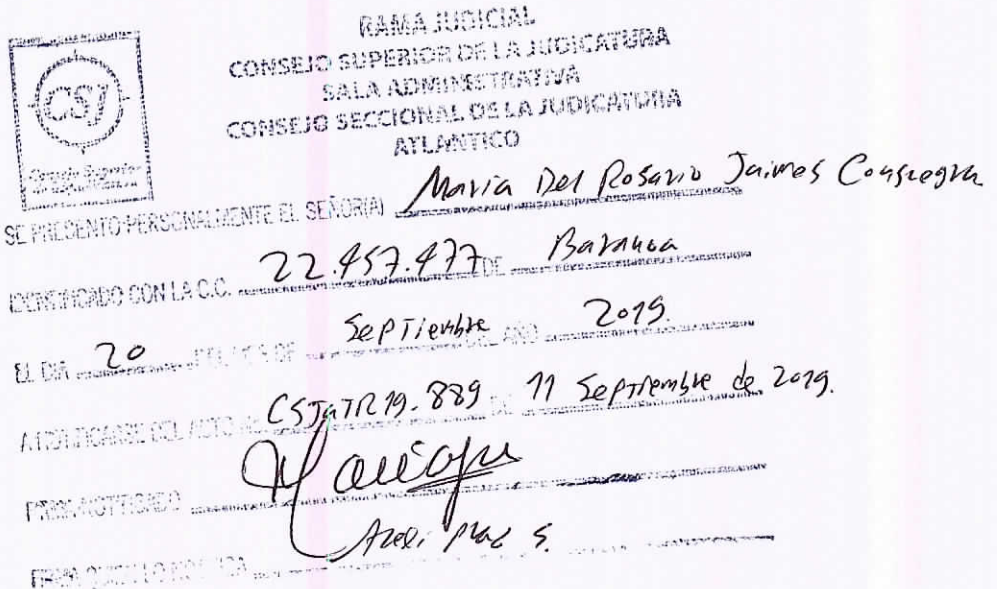 RAMA JUDICIAL
CONSEJO SUPERIOR DE LA JUDICATURA
SALA ADMINISTRATIVA
CONSEJO SECCIONAL DE LA JUDICATURA
ATLANTICO
CSJ
Consejo Superior
SE PRECENTO PERSONALMENTE EL SEÑOR(A) Maria Del Rosario Jaimes Consuegra
IDENTIFICADO CON LA C.C. 22.457.477 DE Baranoa
EL DIA 20 DEL MES DE Septiembre DEL AÑO 2019.
A NOTIFICARSE DEL ACTO CSJATR19.889 DE 11 Septiembre de 2019.
FIRMA NOTIFICADO
FIRMA QUIEN LO NOTIFICA